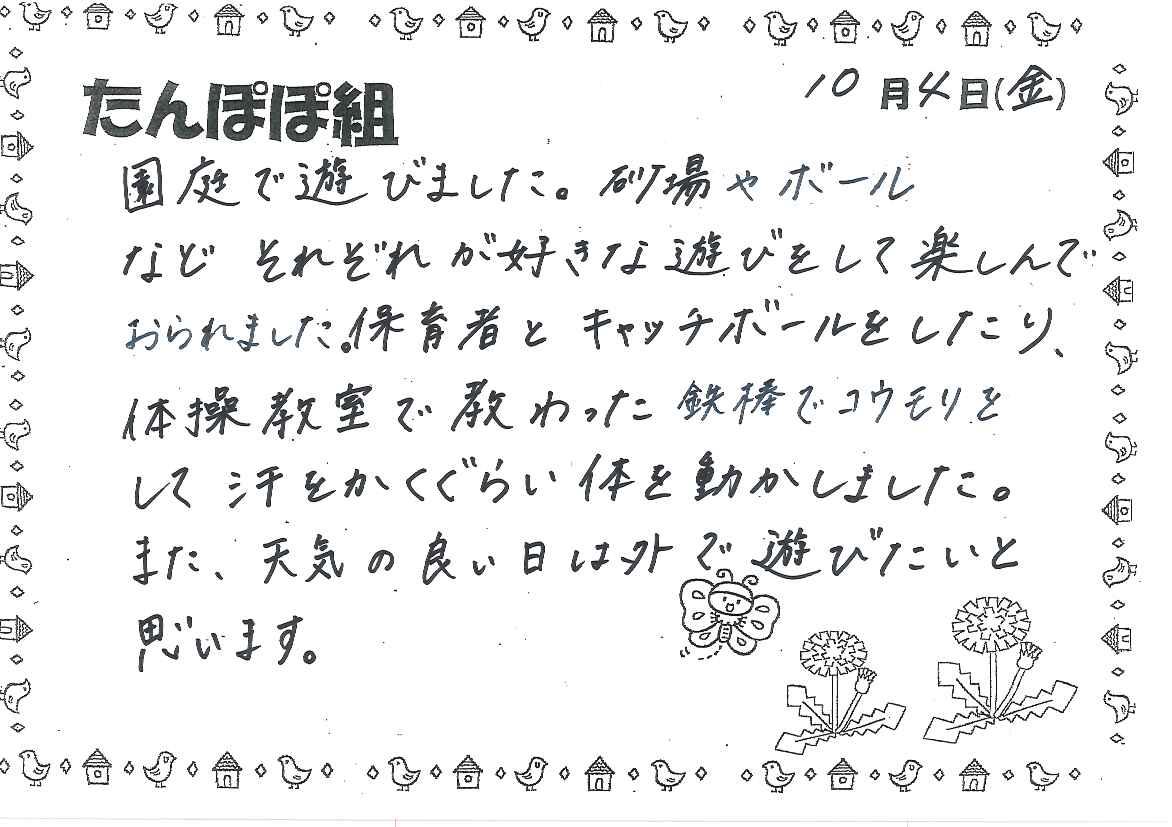 たんぽぽ組
10月4日(金)
園庭で遊びました。砂場やボール
などそれぞれが好きな遊びをして楽しんで
おられました。保育者とキャッチボールをしたり、
体操教室で教わった鉄棒でコウモリを
して汗をかくぐらい体を動かしました。
また、天気の良い日は外で遊びたいと
思います。